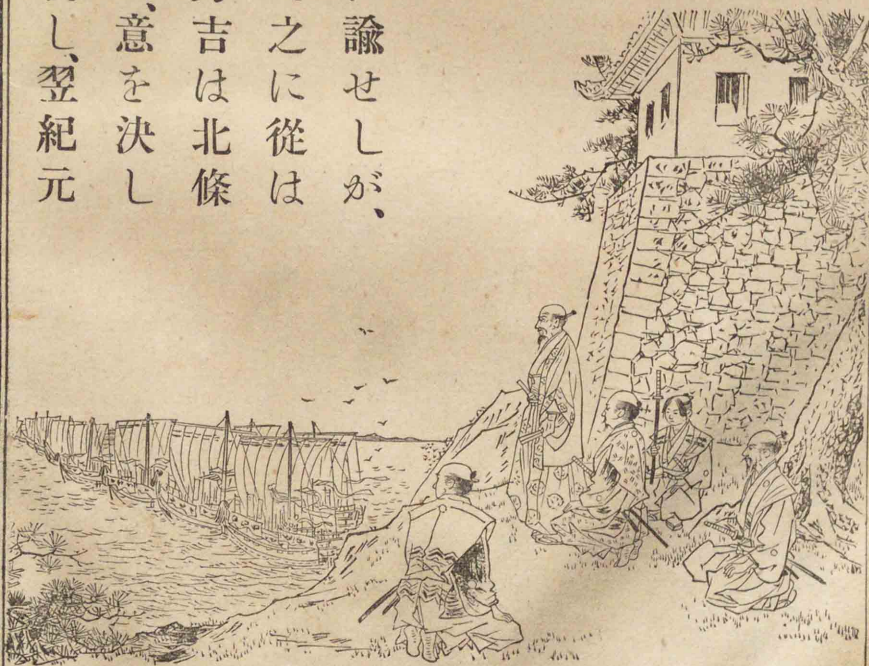 諭せしが、
之に從は
吉は北條
、意を決し
し、翌紀元